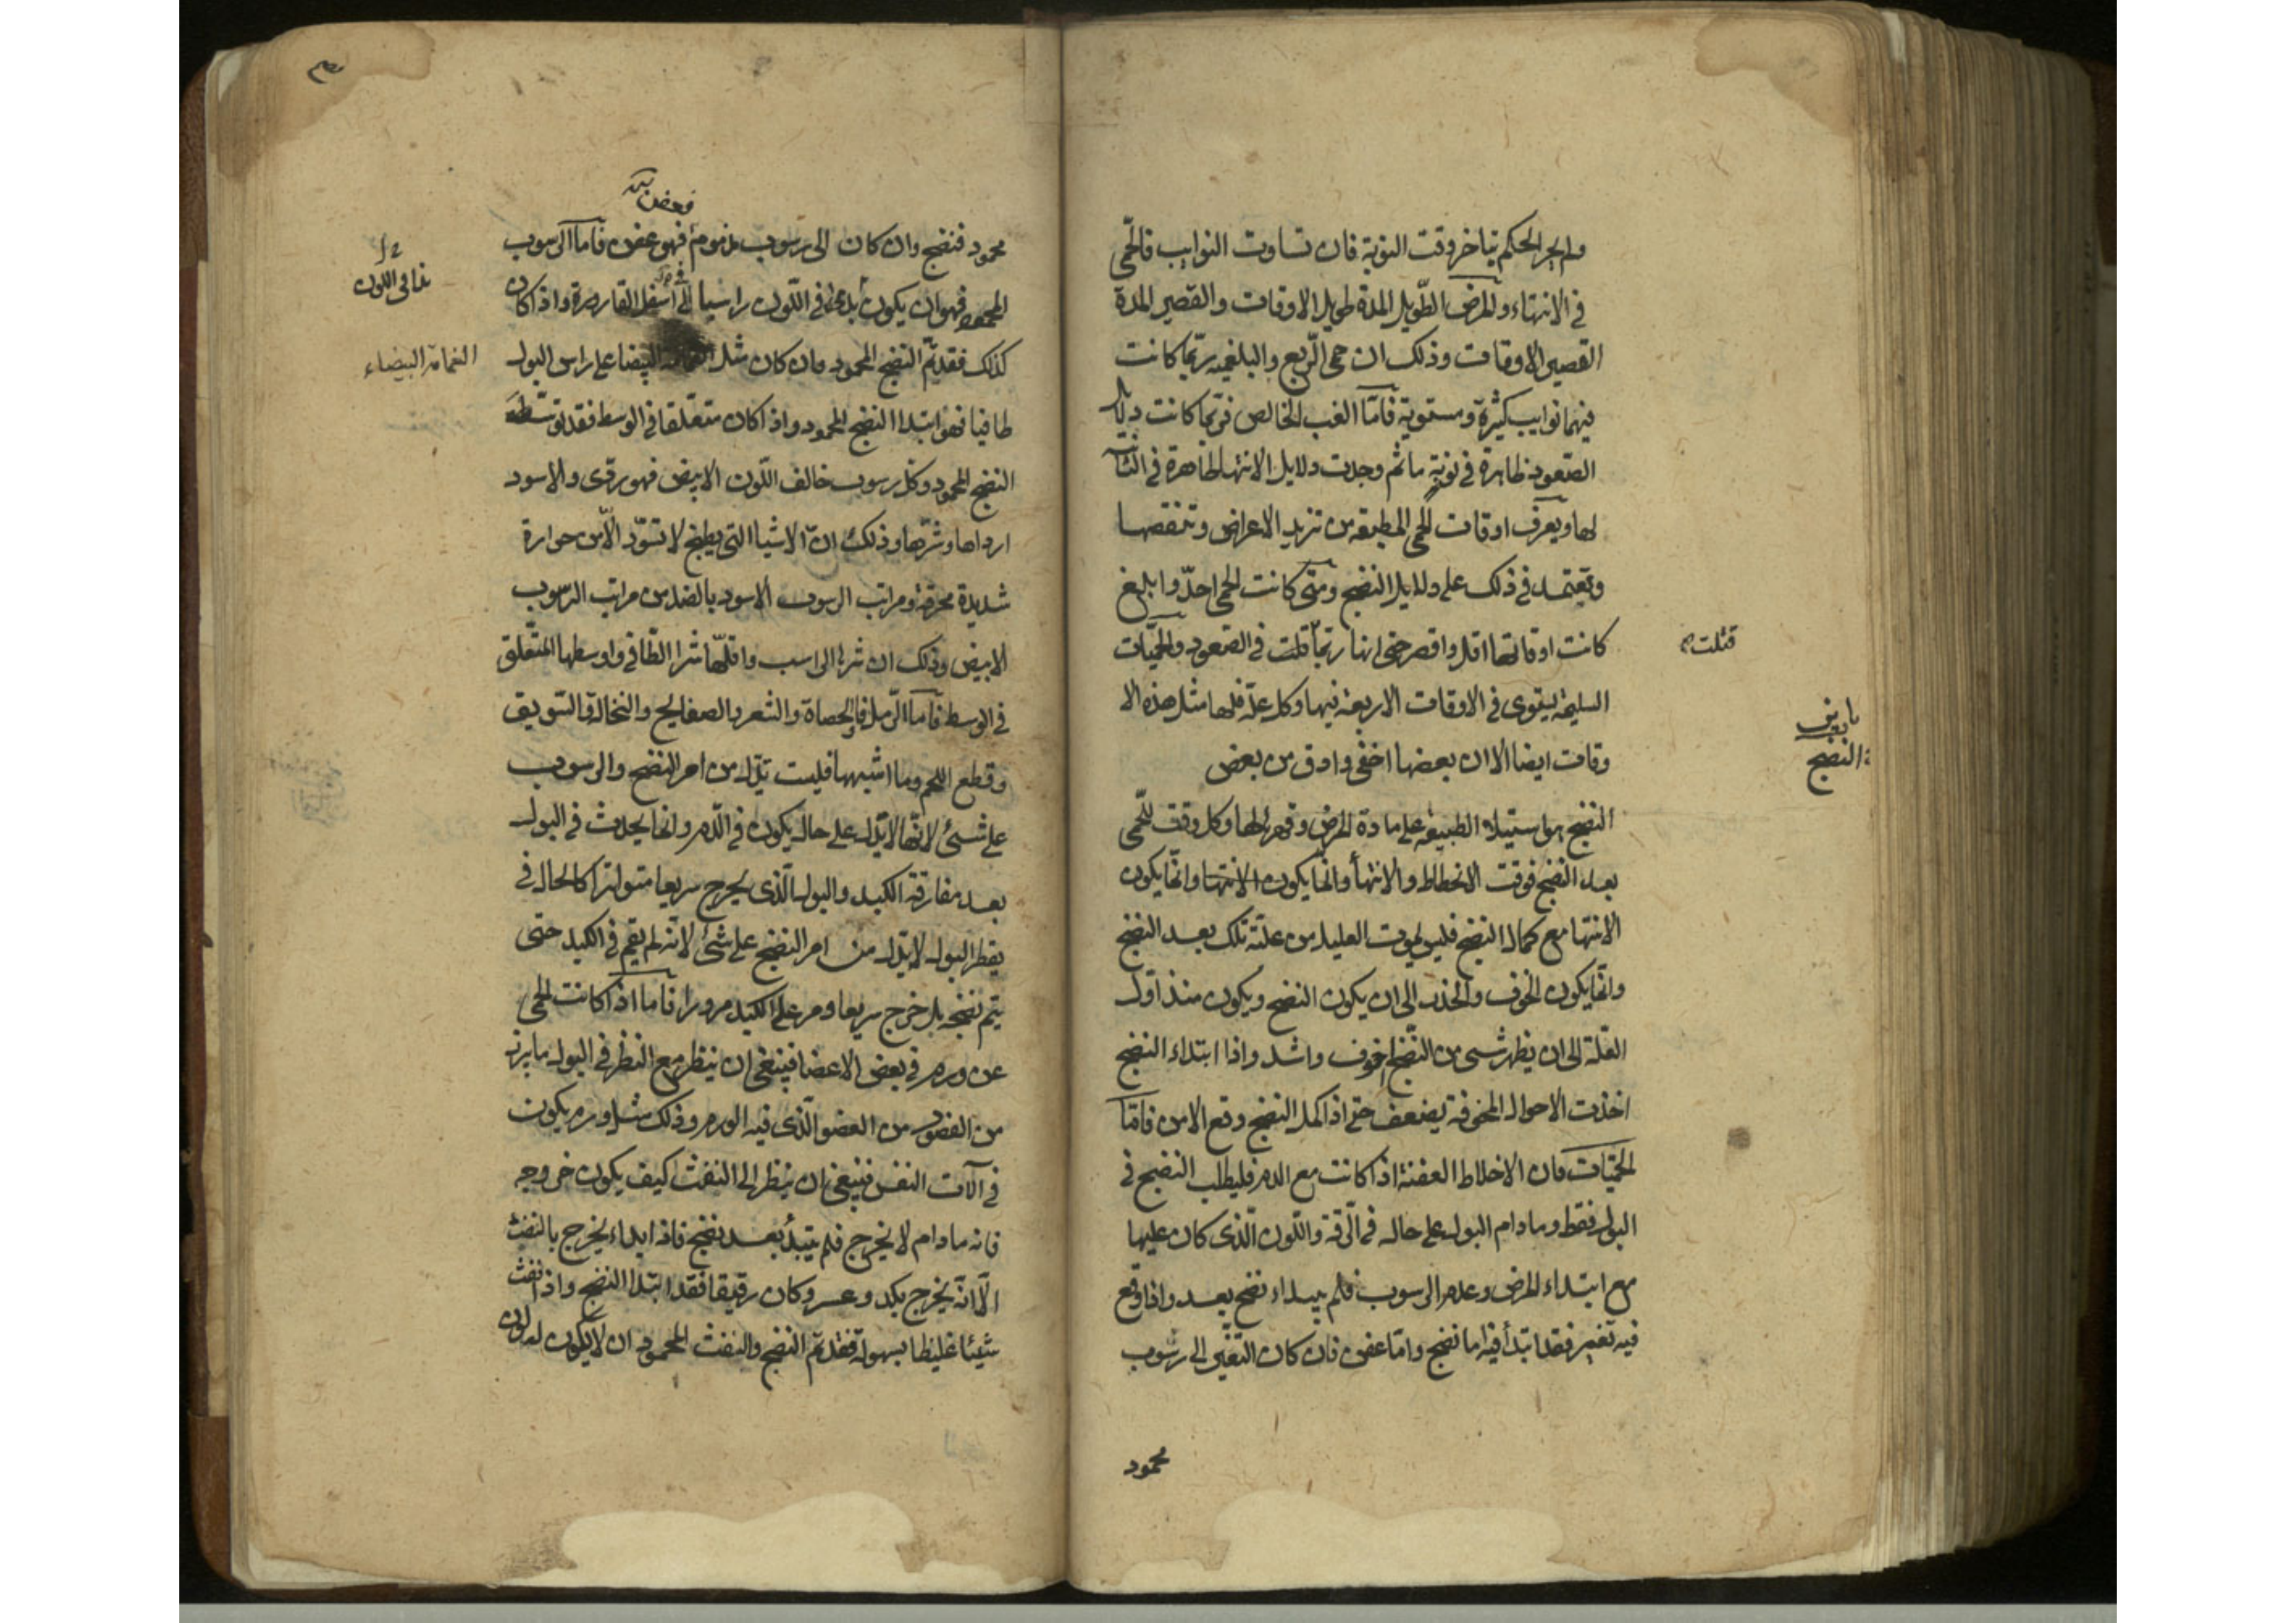 ولم يجر الحكم بتاخر وقت النوبة فان تساوت النوايب فالحمى
في الانتهاء والمرض الطويل المدة طويل الاوقات والقصير المدة
القصير الاوقات وذلك ان حمى الربع والبلغمية ربما كانت
فيهما نوايب كثيرة ومستوية فاما الغب الخالص فربما كانت دلايل
الصعود ظاهرة في نوبة ما ثم وجدت دلايل الانتها ظاهرة في
لها ويعرف اوقات الحمى المطبقة من تزيد الاعراض وتنقصها
وتعتمد في ذلك على دلايل النضج ومتى كانت الحمى احد وابلغ
كانت اوقاتها اقل واقصر حتى انها ربما قلت في الصعود والحميات
قتلت
السليمة يستوى في الاوقات الاربعة فيها وكل علة فلها مثل هذه الا
وقات ايضا الا ان بعضها اخفى وادق من بعض
النضج
النضج هو استيلاء الطبيعة على مادة المرض وقهرها لها وكل وقت للحمى
بعد النضج فوقت الانحطاط والانتهأ وانما يكون الانتها وانما يكون
الانتها مع كمال النضج فليس يموت العليل من علته تلك بعد النضج
وانما يكون الخوف والحذر الى ان يكون النضج ويكون منذ اول
العلة الى ان يظهر شى من النضج اخوف واشد واذا ابتداء النضج
اخذت الاحوال المخوفة يضعف حتى اذا كمل النضج وقع الامن فاما
الحميات فان الاخلاط العفنة اذا كانت مع الدم فليطلب النضج في
البول فقط وما دام البول على حاله في الرقة واللون الذى كان عليها
مع ابتداء المرض وعدم الرسوب فلم يبداء نضج بعد واذا وقع
فيه تغير فقد ابتدأ فيه اما نضج واما عفن فان كان التغير الى رسوب
محمود
محمود فنضج وان كان الى رسوب مذموم فهو عفن فاما الرسوب
المحمود فهو ان يكون في اللون راسيا الى اسفل القارورة واذا كان
كذلك فقد تم النضج المحمود وان كان مثل البيضا على راس البول
الغمامة البيضاء
طافيا فهو ابتدا النضج المحمود واذا كان متعلقا في الوسط فقد توسط
النضج المحمود وكل رسوب خالف اللون الابيض فهو ردى والاسود
ارداها وشرها وذلك ان الاشيا التى يطبخ لا تسود الا من حرارة
شديدة محرقة ومراتب الرسوب الاسود بالضد من مراتب الرسوب
الابيض وذلك ان شرها الراسب واقلها شرا الطافى واوسطها المتعلق
في الوسط فاما الرمل والحصاة والشعر والصفايح والنخالة والسويق
وقطع اللحم وما اشبهها فليست تدل من امر النضج والرسوب
على شئ لانها لا تدل على حال يكون في الدم وانما يحدث في البول
بعد مفارقة الكبد والبول الذى يخرج سريعا متواترا كالحال في
يقطر البول لا يدل من امر النضج على شئ لانه لم يقم في الكبد حتى
يتم نضجه بل خرج سريعا ومر على الكبد مرورا فاما اذا كانت الحمى
عن ورم في بعض الاعضا فينبغى ان ينظر مع النظر في البول ما يبرز
من الفضول من العضو الذى فيه الورم وذلك مثل ورم يكون
في آلات النفس فينبغى ان ينظر الى النفث كيف يكون خروجه
فانه ما دام لا يخرج فلم يبتدأ بعد نضج فاذا ابداء يخرج بالنفث
الا انه يخرج بكد وعسر وكان رقيقا فقد ابتدا النضج واذا نفث
شيئا غليظا بسهولة فقد تم النضج والنفث المحمود ان لا يكون له لون